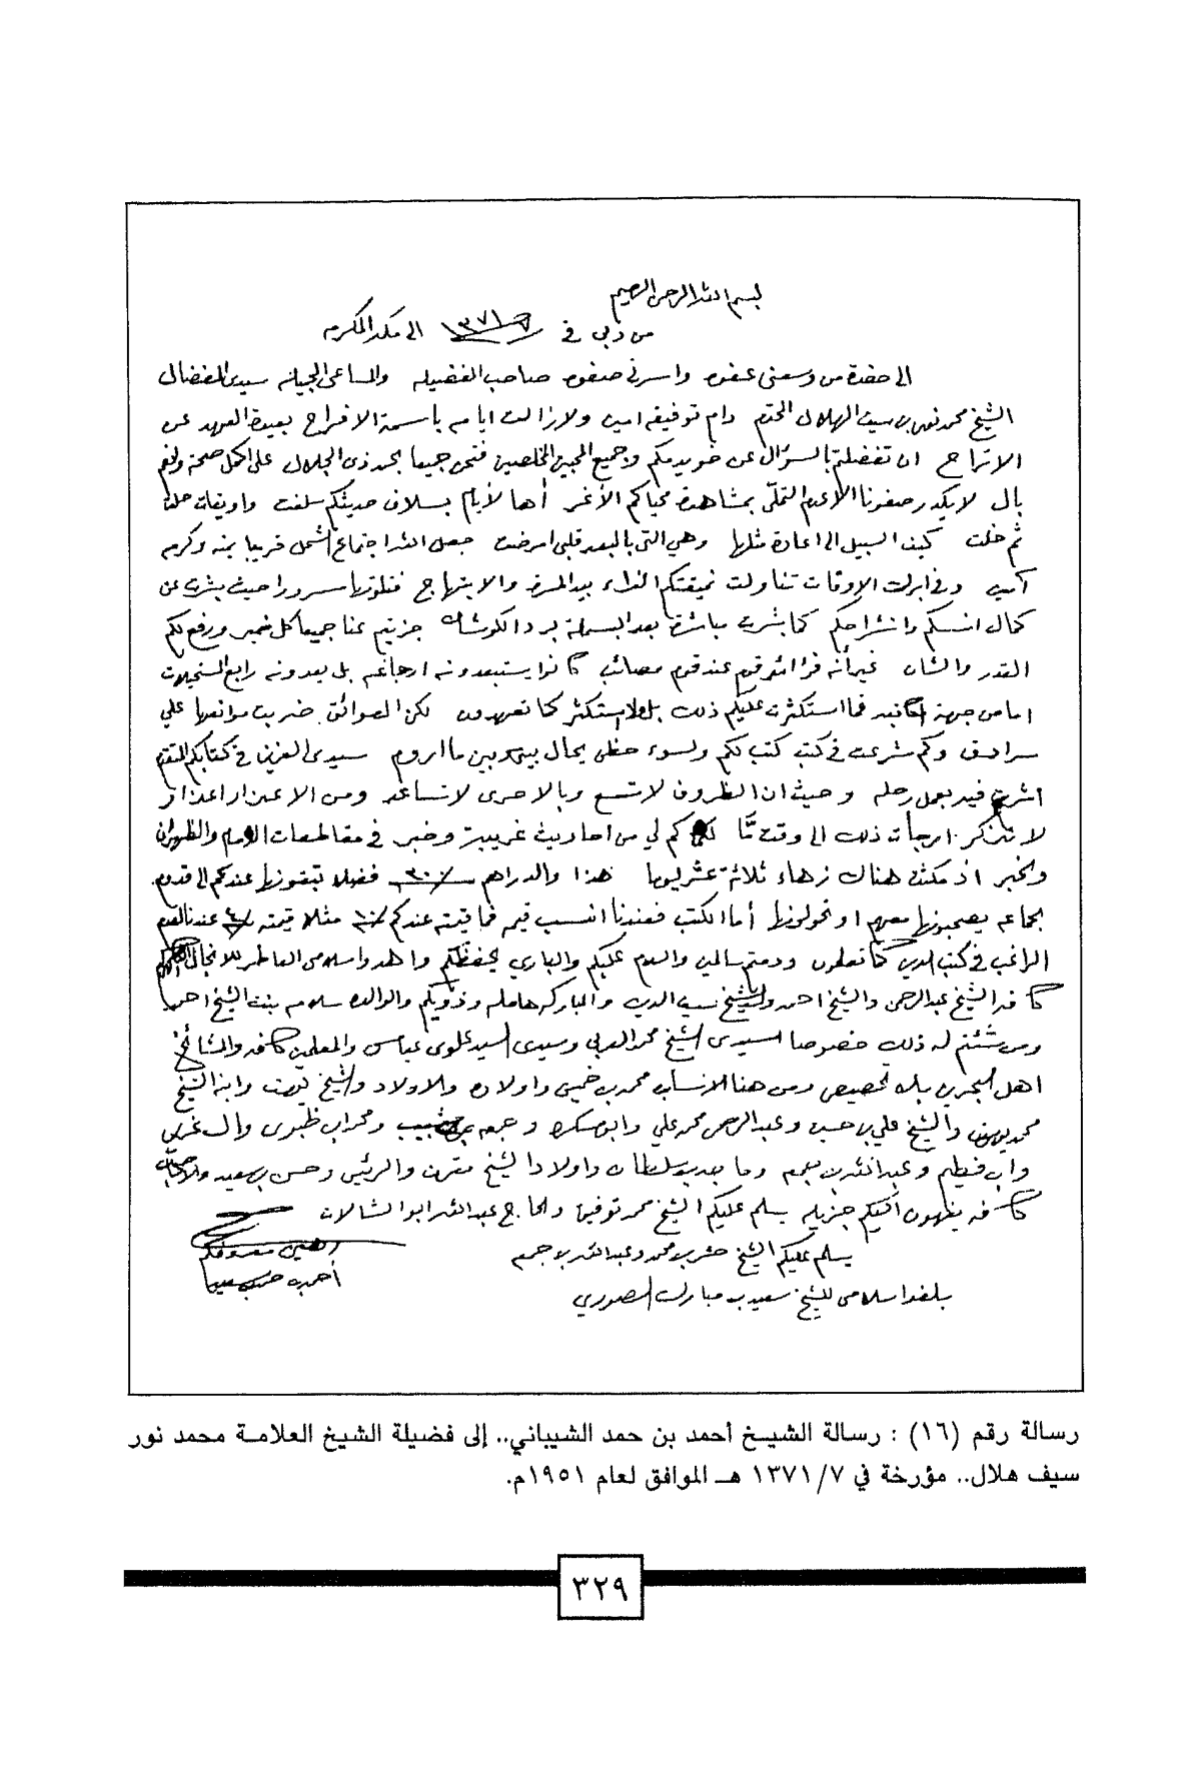 بسم الله الرحمن الرحيم
من دبي في ١٣٧١/٧ الى مكة المكرمه
الى حضرة من وسعني عفوه واسرني صفوه صاحب الفضيله والمساعى الجليله سيدى المفضال
الشيخ محمد نور بن سيف الهلال المحترم دام توفيقه امين ولازالت ايامه باسمة الافراح بعيدة العهد عن
الاتراح ان تفضلتم بالسؤال عن خويدمكم وجميع المحبين المخلصين فنحن جميعا بحمد ذي الجلال على اكمل صحة وانعم
بال لا يكدر صفونا الا عدم التملّي بمشاهدة محياكم الأغر أها لأيام بسلاف حديثكم سلفت واويقات حلت
ثم خلت كيف السبيل الى اعادة مثلها وهي التى بالبعد قلبي امرضت جعل الله اجتماع الشمل قريبا بمنه وكرمه
آمين وفي ابرك الاوقات تناولت نميقتكم الغراء بيد المسرة والابتهاج فتلوتها سرورا حيث بشرت عن
كمال انسكم وانشراحكم كما بشرت مباشرة بعد البسملة برد الكوشك جزيتم عنا جميعا كل خير ورفع لكم
القدر والشان غير أنه فوائد قوم عند قوم مصائب كانوا يستبعدونه ارجاعهم بل يعدونه رابع المستحيلات
اما من جهة فما استكثرت عليكم ذلك بل ولا استكثر كما تعهدون لكن العوائق ضربت مواقعها علي
سرادق وكم شرعت في كتب كتب لكم ولسوء حظى يحال بيني وبين ما اروم سيدى العزيز في كتابكم المتقدم
اشرتم فيه بعمل رحله وحيث ان الظروف لا تسمح وبالاحرى لا تساعد ومن الاعذار اعذار
لا تذكر ارجأت ذلك الى وقت مّا لكم كم لي من احاديث غريبة وخبر في مقاطعات الدمام والظهران
والخبر اذ مكثت هناك زهاء ثلاثة عشر يوما هذا والدراهم ٣٠٠ فضلا تبقونها عندكم الى قدوم
جماعه يصحبونها معهم او تحولونها أما الكتب فعندنا انسب قيم فما قيمته عندكم مثلا قيمته عندنا لعدم
الراغب في كتب الدين كما تعلمون ودمتم سالمين والسلام عليكم والباري يحفظكم واهدوا سلامى العاطر للانجال
كافه الشيخ عبد الرحمن والشيخ احمد والشيخ سيف الدين والمباركه حامله وذويكم والوالده سلامه بنت الشيخ احمد
ومن شئتم له ذلك خصوصا لسيدى الشيخ محمد العربي وسيدى السيد علوى عباس والمعلمين كافه والمشائخ
اهل البحرين بلا تخصيص ومن هنا الانساب محمد بن خميس واولاده والاولاد والشيخ يوسف وابنه الشيخ
محمد يوسف والشيخ علي بن حسن وعبد الرحمن محمد علي وابو سكره وجمعه بن شبيب ومحراب ظبوى وال غرير
وابن فنيطم وعبد الله بن جمعه وما بعد بن سلطان واولاد الشيخ مقرن والرئيس وحسن بن سعيد والاصحاب
كافه ينهون اليكم جزيله يسلم عليكم الشيخ محمد توفيق والحاج عبد الله ابو الشالات
يسلم عليكم الشيخ حشر بن محمد وعبد الله بن جمعه
بلغوا سلامى للشيخ سعيد بن مبارك المنصوري
أحمد بن حمد الشيباني
رسالة رقم (١٦) : رسالة الشيخ أحمد بن حمد الشيباني.. إلى فضيلة الشيخ العلامة محمد نور
سيف هلال.. مؤرخة في ١٣٧١/٧ هـ الموافق لعام ١٩٥١م.
٣٢٩